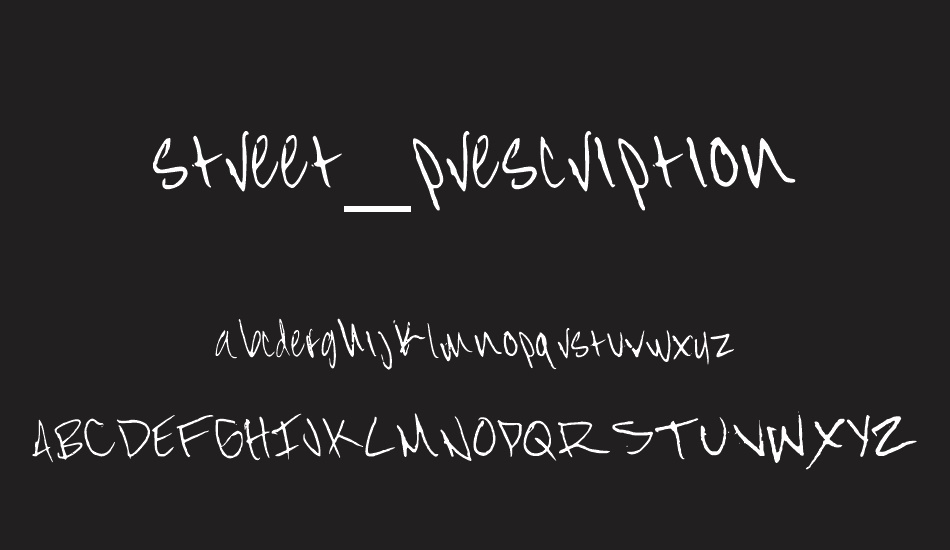 street_prescription
abcdefghijklmnopqrstuvwxyz
ABCDEFGHIJKLMNOPQRSTUVWXYZ